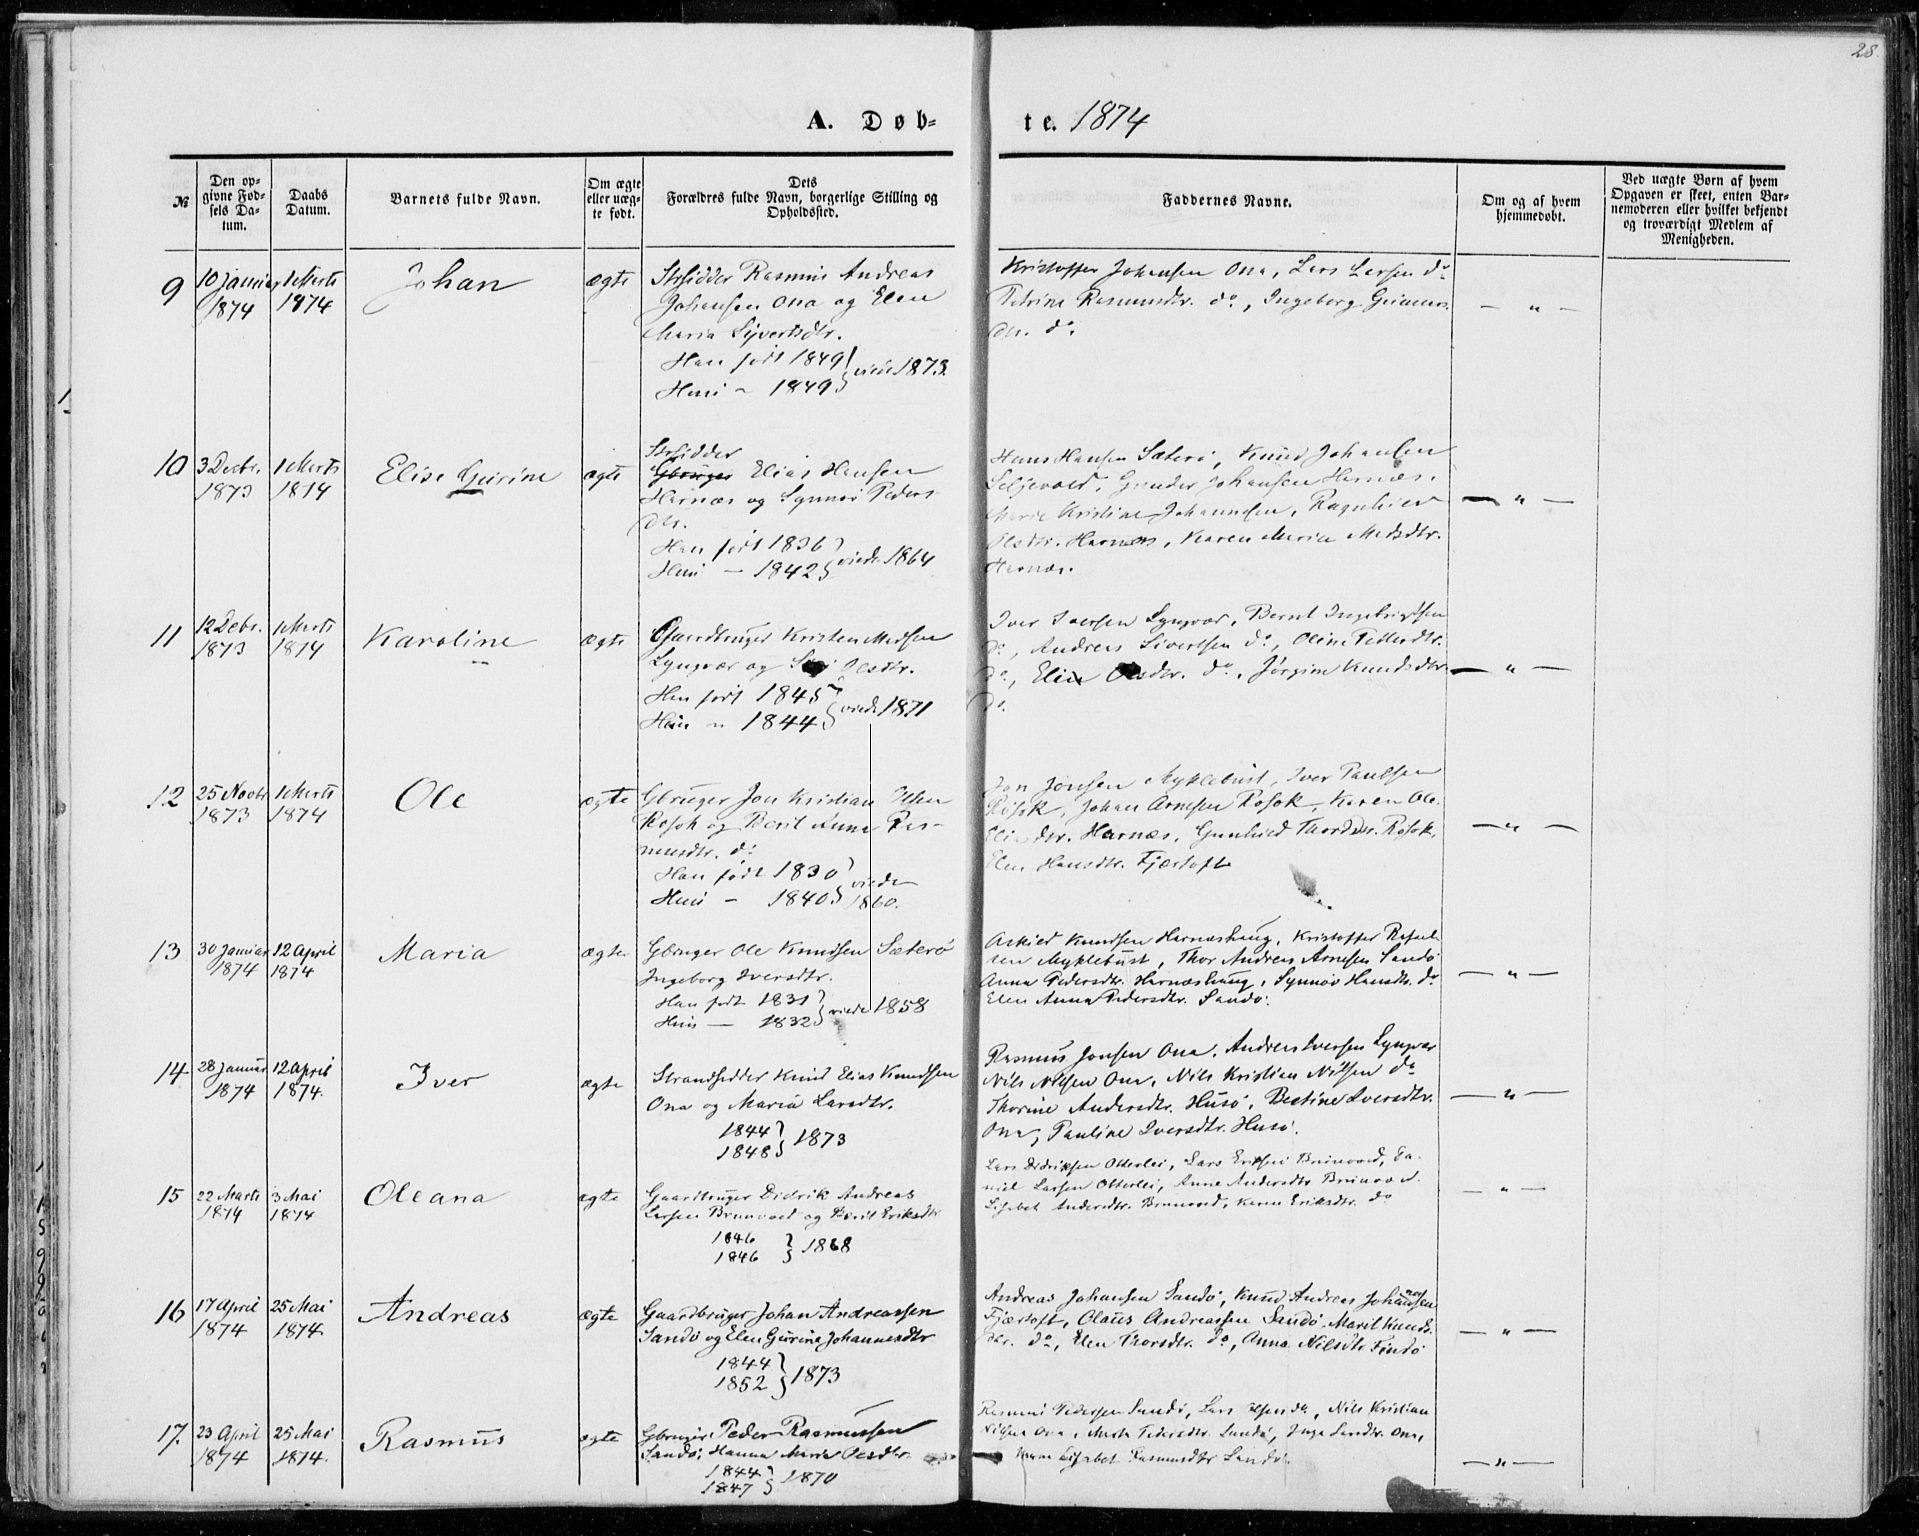 28.
A. Døb-
te. 1874
№
Den op-
givne Fød-
sels Da-
tum.
Daabs
Datum.
Barnets fulde Navn.
Om ægte
eller uæg-
te født.
Dets
Forældres fulde Navn, borgerlige Stilling og
Opholdssted.
Faddernes Navne.
Om og af hvem
hjemmedøbt.
Ved uægte Børn af hvem
Opgaven er skeet, enten Bar-
nemoderen eller hvilket bekjendt
og troværdigt Medlem af
Menigheden.
9
10 Januar
1874
1 Marts
1874
Johan
ægte
Strsidder Rasmus Andreas
Johansen Ona og Elen
Maria Syvertsdtr.
Han født 1849
Hun " 1849 } viede 1873.
Kristoffer Johansen Ona, Lars Larsen do
Petrine Rasmusdtr. do, Ingeborg
dtr. do
— " —
10
3 Decbr.
1873
1 Marts
1874
Elise Gurine
ægte
Strsidder
Gbruger Elias Hansen
Harnæs og Synnøv Peders
dtr.
Han født 1836
Hun — 1842 } viede 1864
Hans Hansen Sæterø, Knud Johansen
Seljevold, Gunder Johansen Harnæs,
Marie Kristine Johannsen, Ragnhild
Olsdtr. Harnæs, Karen Maria Madsdtr.
Harnæs.
— " —
11
12 Debr.
1873
1 Marts
1874
Karoline
ægte
Gaardbruger Kristen Madsen
Lyngvær og Olsdtr.
Han født 1845
Hun " 1844 } viede 1871
Iver Iversen Lyngvær, Bernt Ingebrigtsen
do, Andreas Sivertsen do, Oline Pettersdtr.
do, Elen Olsdtr. do, Jørgine Knudsdtr.
do.
— " —
12
25 Novbr
1873
1 Marts
1874
Ole
ægte
Gbruger Jon Kristian Olsen
Røsok og Berit Anna Ras-
musdtr. do
Han født 1830
Hun — 1840 } viede
1860.
Jon Jonsen Myklebust, Iver Paulsen
Røsok, Johan Arnesen Røsok, Karen Ole
dtr. Harnæs, Gunhild Thordsdtr. Røsok,
Elen Hansdtr. Fjærtoft
— " —
13
30 Januar
1874
12 April
1874
Maria
ægte
Gbruger Ole Knudsen Sæterø
Ingeborg Iversdtr.
Han født 1831
Hun — 1832 } viede 1858
Askild Knudsen Harnæshaug, Kristoffer Rafael-
sen Myklebust, Thor Andreas Arnesen Sandø
Anna Pedersdtr. Harnæshaug, Synnøv Hansdtr. do
Elen Anna Pedersdtr. Sandø.
— " —
14
28 Januar
1874
12 April
1874.
Iver
ægte
Strandsidder Knud Elias Knudsen
Ona og Maria Larsdtr.
1844
1848 } 1873
Rasmus Jonsen Ona, Andreas Iversen Lyngvær
Nils Nilsen Ona, Nils Kristian Nilsen do
Thorine Andersdtr. Husø, Bertine Iversdtr.
Ona, Pauline Iversdtr. Husø.
— " —
15
22 Marts
1874
3 Mai
1874
Oleana
ægte
Gaardbruger Didrik Andreas
Larsen Brunvold og Berit Eriksdtr
1846
1846 } 1868
Lars Didriksen Otterlei, Lars Eriksen Brunvold, Da-
niel Larsen Otterlei, Anne Andersdtr Brunvold
Lisabet Andersdtr. Brunvold, Karen Eriksdtr. do
— " —
16
17 April
1874
25 Mai
1874.
Andreas
ægte
Gaardbruger Johan Andreassen
Sandø og Elen Gurine Johannesdtr
1844
1852 } 1873
Andreas Johansen Sandø, Knud Andreas Johannesen
Fjærtoft, Olaus Andreassen Sandø, Marit Knuds-
dtr. do, Elen Thorsdtr. do, Anna Nilsdtr Findø
— " —
17.
23 April
1874
25 Mai
1874.
Rasmus
ægte
Gbruger Peder Rasmussen
Sandø, Hanna Marie Olsdtr.
1844
1847 } 1870
Rasmus Pedersen Sandø, Lars Olsen do, Nils Kristian
Nilsen Ona, Marta Pedersdtr. Sandø, Inga Larsdtr. Ona,
Lisabet Rasmusdtr Sandø.
— " —